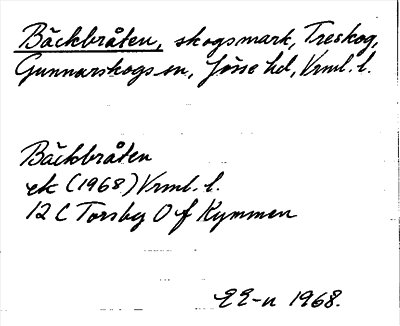 Bäckbråten, skogsmark, Treskog,
Gunnarskogs sn, Jösse hd, Vrml. l.
Bäckbråten
ek (1968) Vrml. l.
12 C Torsby O f Kymmen
EE-n 1968.